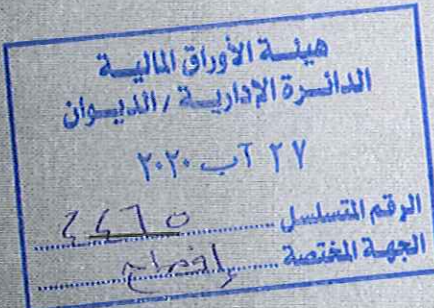 هيئة الأوراق المالية
الدائرة الإدارية / الديوان
٢٧ آب ٢٠٢٠
الرقم المتسلسل ٢٤٦٥
الجهة المختصة إفصاح